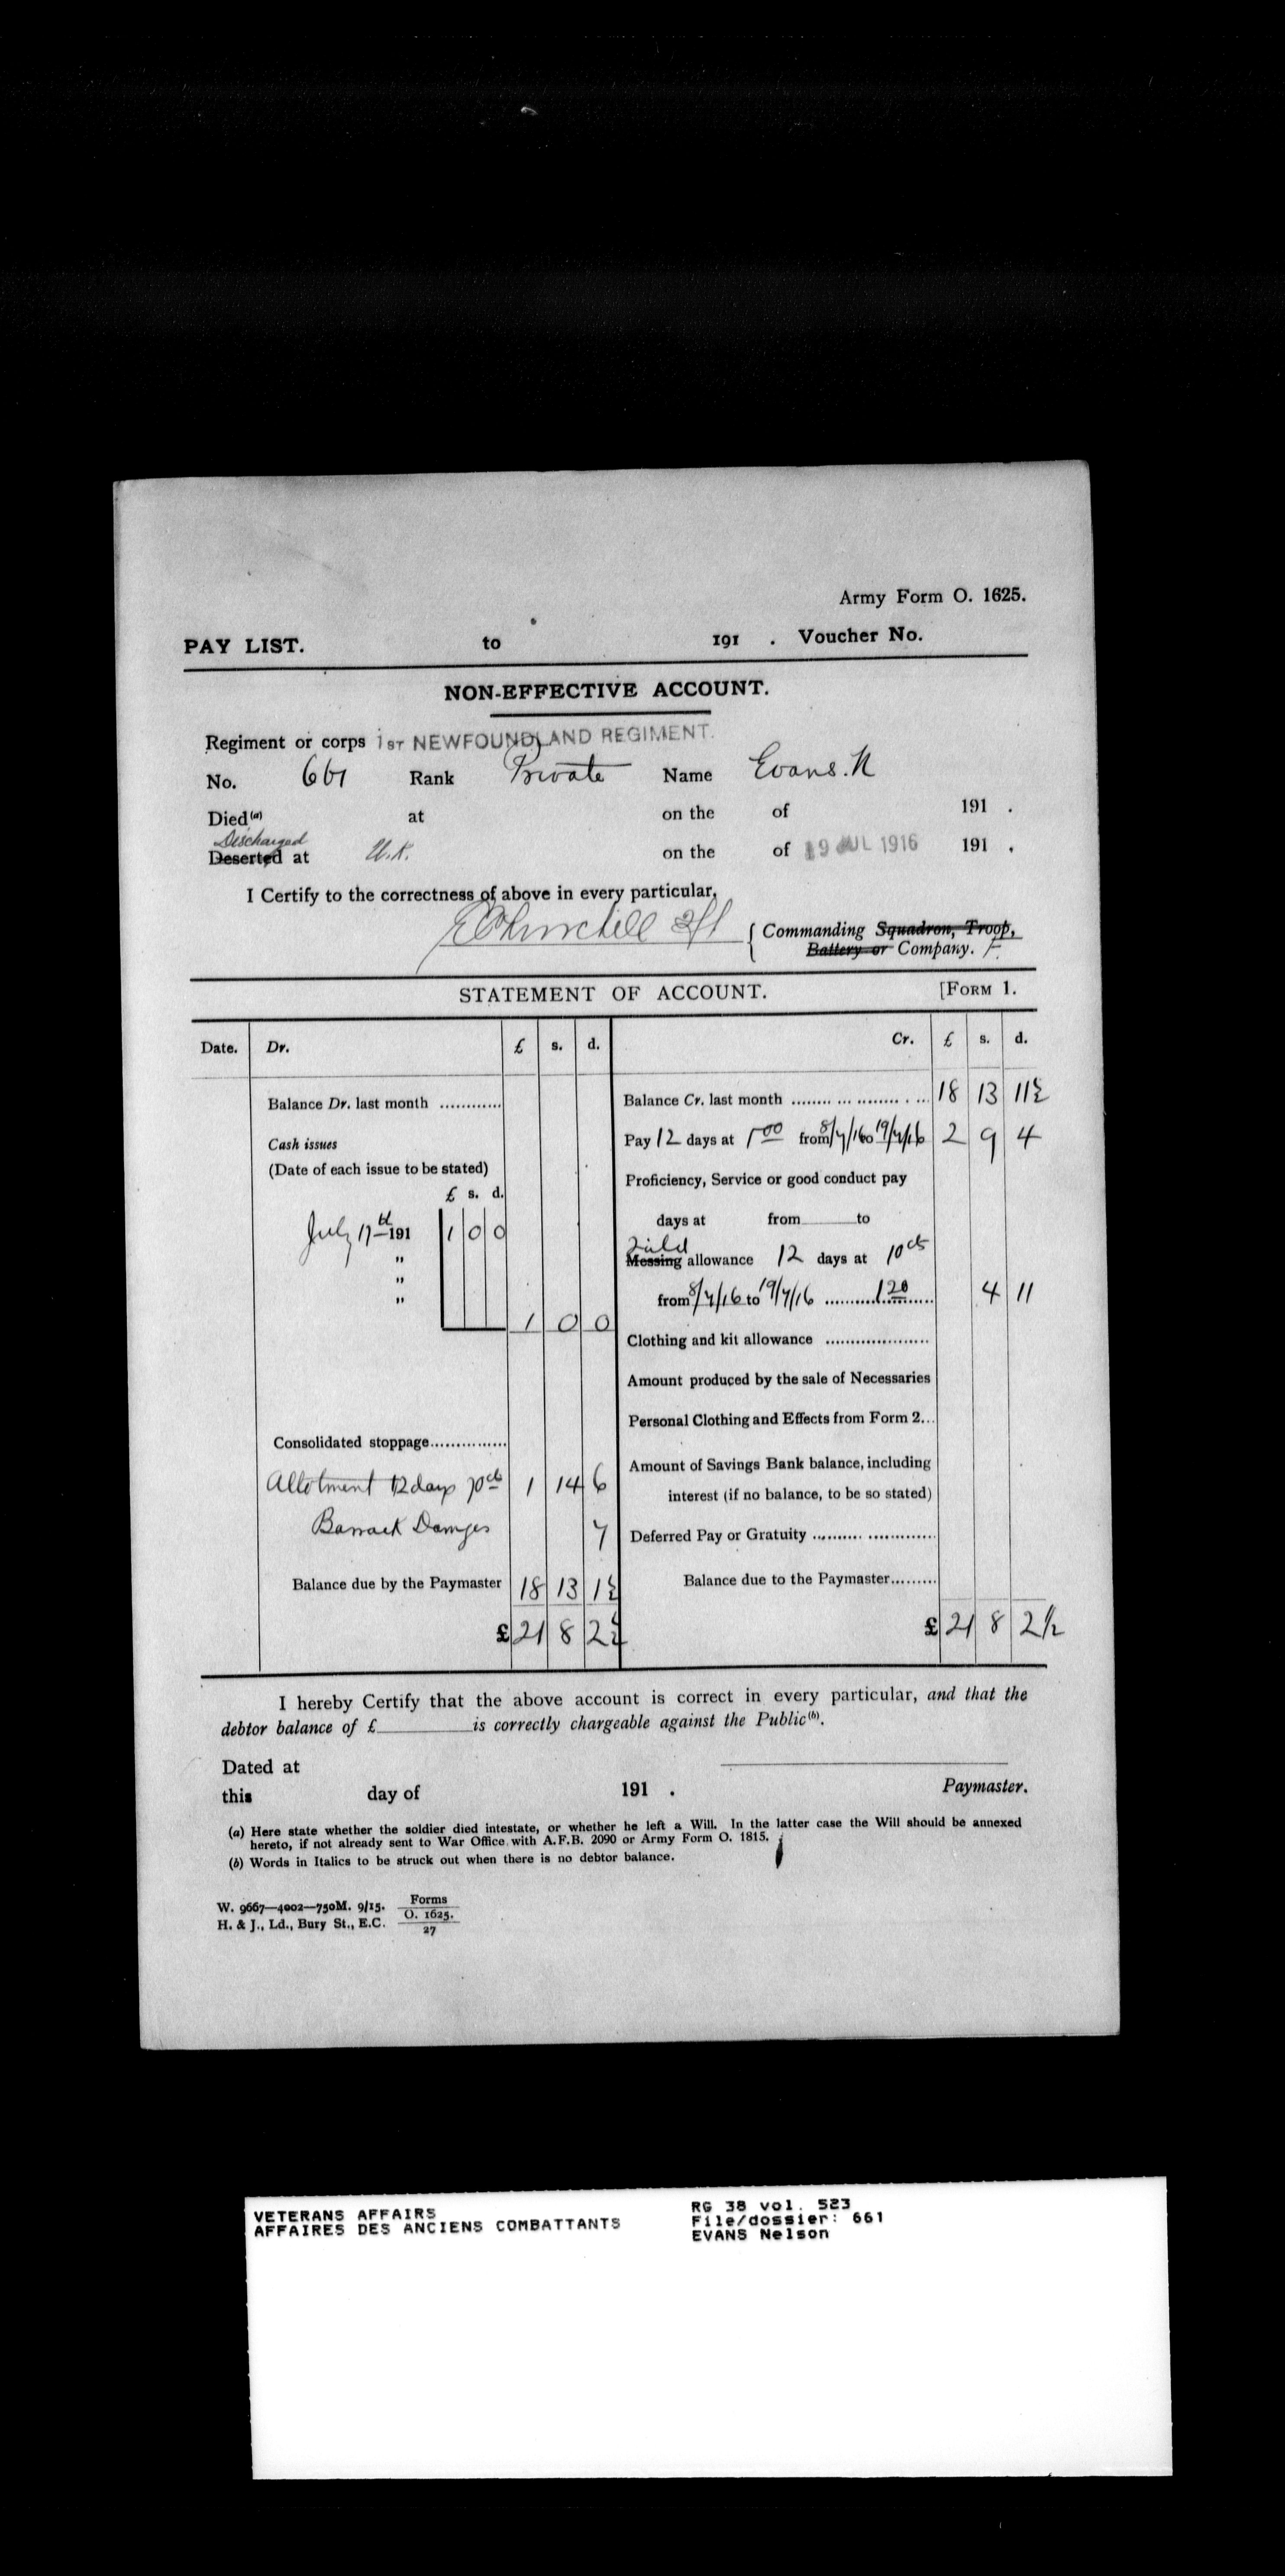 Army Form O. 1625.
PAY LIST. to 191 . Voucher No.
NON-EFFECTIVE ACCOUNT.
Regiment or corps 1ST NEWFOUNDLAND REGIMENT.
No. 661 Rank Private Name Evans. N
Died (a) at on the of 191 .
Discharged
Deserted at U.K. on the of 19 JUL 1916 191 .
I Certify to the correctness of above in every particular,
Churchill { Commanding Squadron, Troop,
Battery or Company. F.
STATEMENT OF ACCOUNT. [FORM 1.
Date. Dr. £ s. d. Cr. £ s. d.
Balance Dr. last month ............ Balance Cr. last month ........ ... ......... . ... 18 13 11½
Cash issues Pay 12 days at 1 00 from 8/7/16 to 19/7/16 2 9 4
(Date of each issue to be stated) Proficiency, Service or good conduct pay
£ s. d.
days at from to
July 17th 191 1 0 0
Field
" Messing allowance 12 days at 10 cts
"
" from 8/7/16 to 19/7/16 .......... 1 20 .......... 4 11
1 0 0
Clothing and kit allowance ....................
Amount produced by the sale of Necessaries
Personal Clothing and Effects from Form 2...
Consolidated stoppage...............
Amount of Savings Bank balance, including
Allotment 12 days 70 cts 1 14 6 interest (if no balance, to be so stated)
Barrack Damges 7 Deferred Pay or Gratuity .......... .............
Balance due by the Paymaster 18 13 1½ Balance due to the Paymaster.........
£ 21 8 2½ £ 21 8 2½
I hereby Certify that the above account is correct in every particular, and that the
debtor balance of £ is correctly chargeable against the Public (b).
Dated at
this day of 191 . Paymaster.
(a) Here state whether the soldier died intestate, or whether he left a Will. In the latter case the Will should be annexed
hereto, if not already sent to War Office with A.F.B. 2090 or Army Form O. 1815.
(b) Words in Italics to be struck out when there is no debtor balance.
W. 9667—4002—750M. 9/15. Forms
H. & J., Ld., Bury St., E.C. O. 1625.
27
VETERANS AFFAIRS
AFFAIRES DES ANCIENS COMBATTANTS
RG 38 vol. 523
File/dossier: 661
EVANS Nelson